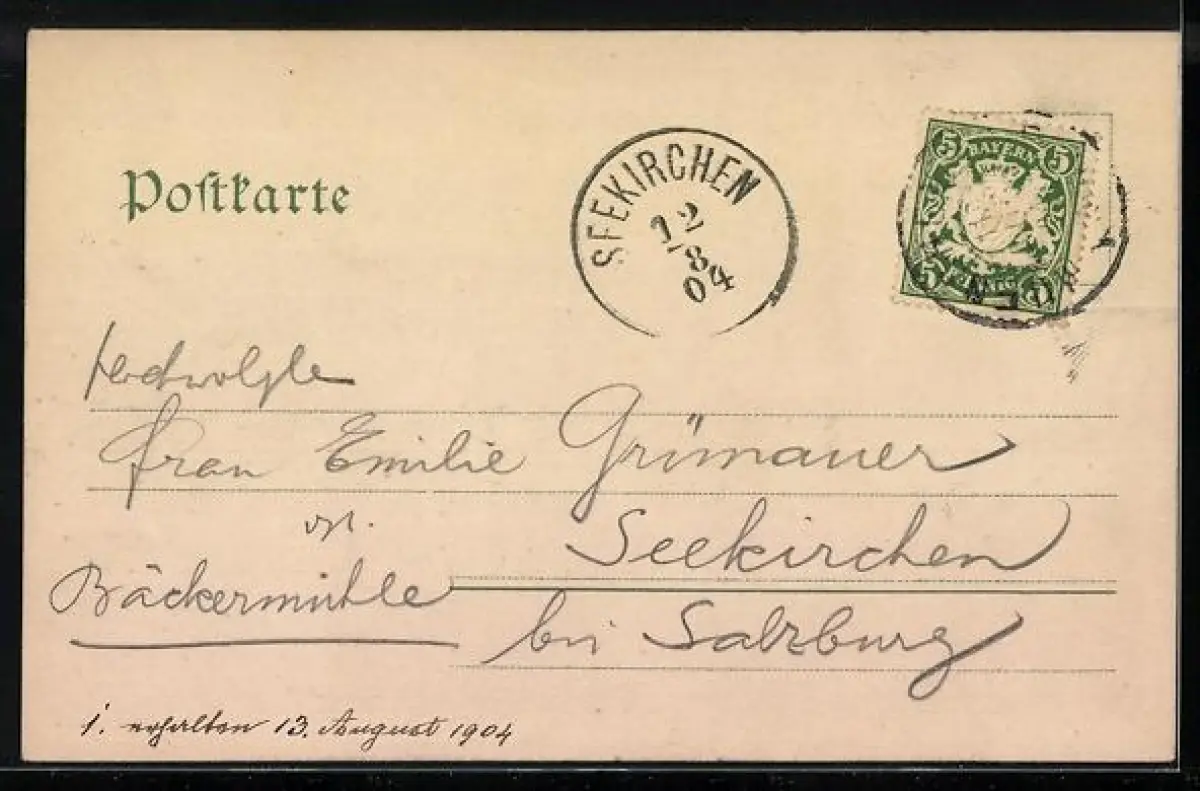 Poſtkarte
SEEKIRCHEN
12
8
04
5 BAYERN 5
5
Frau Emilie Grümauer
Seekirchen
Bäckermühle
bei Salzburg
1. erhalten 13. August 1904